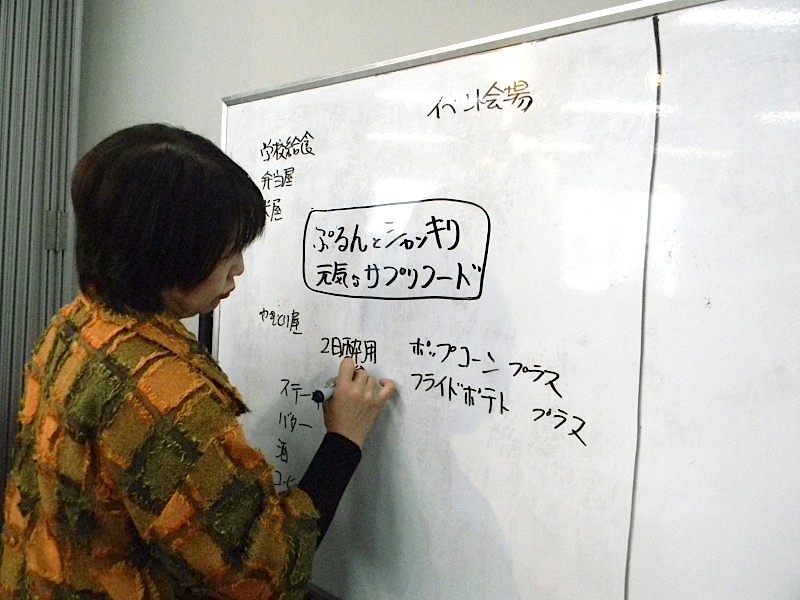 イベント会場
学校給食
弁当屋
米屋
ぷるんとシャンキリ
元気なサプリフード
やきとり屋
2日酔用
ポップコーン プラス
フライドポテト プラス
バター
酒